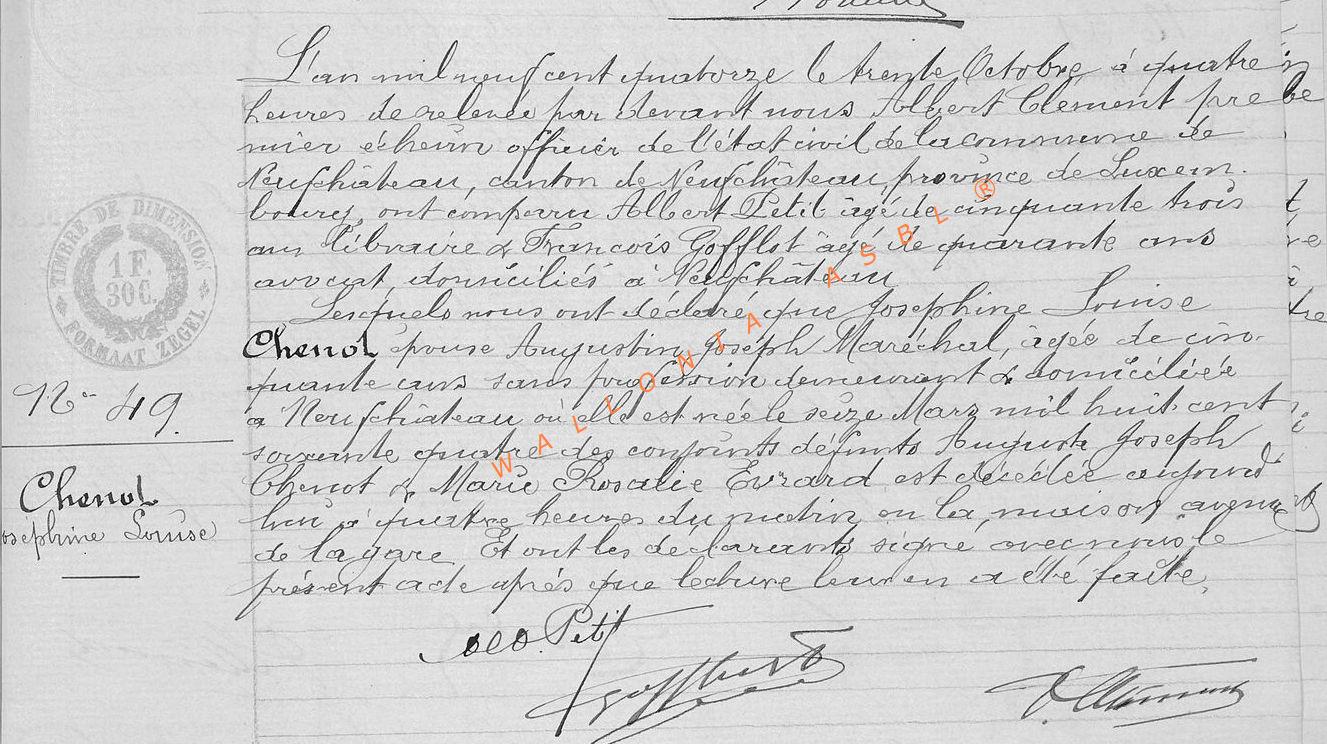 L'an mil neuf cent quatorze le trente Octobre à quatre
heures de relevée par devant nous Albert Clement pre
mier échevin officier de l'état civil de la commune de
Neufchâteau, canton de Neufchâteau, province de Luxem.
bourg, ont comparu Albert Petit âgé de cinquante trois
ans libraire & François Gofflot âgé de quarante ans
avocat, domiciliés à Neufchâteau
Lesquels nous ont déclaré que Joséphine Louise
Chenot épouse Augustin Joseph Maréchal, âgée de cin-
quante ans sans profession demeurant & domiciliée
à Neufchâteau où elle est née le seize Mars mil huit cent
soixante quatre des conjoints défunts Auguste Joseph
Chenot & Marie Rosalie Evrard est décédée aujourd
hui à quatre heures du matin en la maison avenue
de la gare. Et ont les déclarants signé avec nous le
présent acte après que lecture leur en a été faite.
TIMBRE DE DIMENSION
1 F.
30 C.
FORMAAT ZEGEL
No 49.
Chenot
oséphine Louise
WALLONIA ASBL ®
Alb. Petit
Gofflot
A. Clément